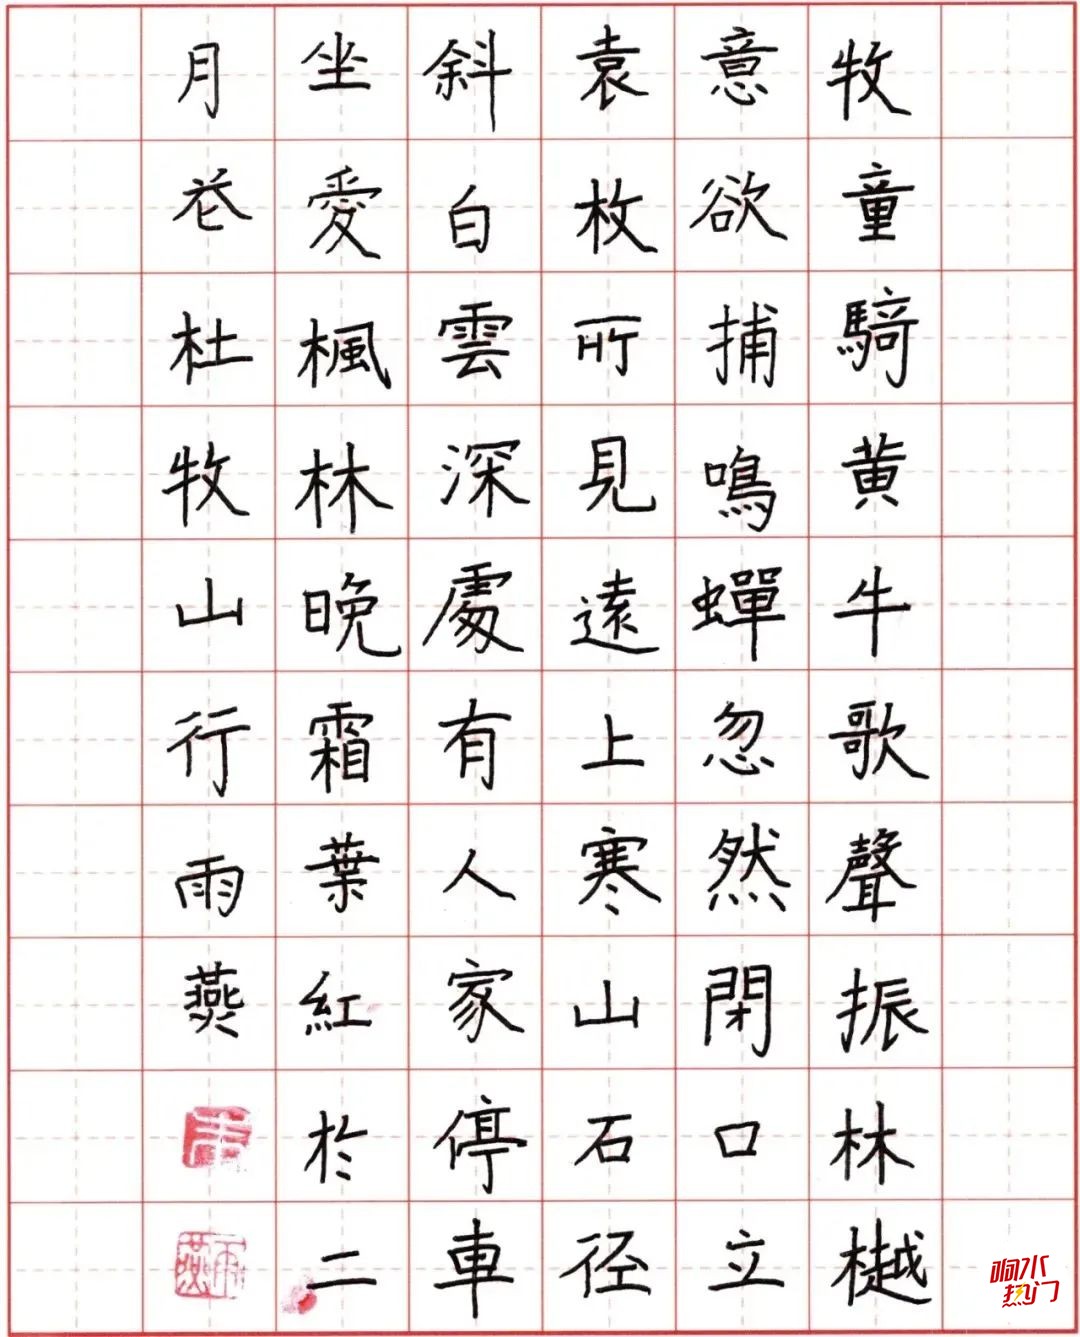 牧童騎黄牛歌聲振林樾
意欲捕鳴蟬忽然閉口立
袁枚所見遠上寒山石径
斜白雲深處有人家停車
坐愛楓林晚霜葉紅於二
月花杜牧山行雨燕
雨燕
响水
热门